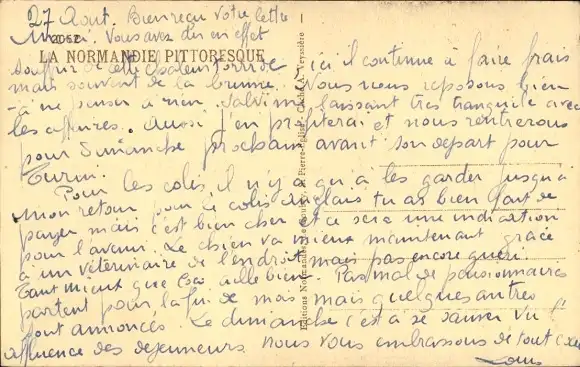 27 Aout. Bien reçu votre lettre
merci. Vous avez du en effet
2052
LA NORMANDIE PITTORESQUE
souffrir de cette chaleur torride
ici il continue à faire frais
mais souvent de la brume. Nous nous reposons bien
à ne penser à rien, Salvimi laissant très tranquille avec
les affaires. Aussi j'en profiterai et nous rentrerons
pour Dimanche prochain avant son départ pour
Turin.
Pour les colis, il n'y a qu'à les garder jusqu'à
mon retour pour le colis anglais tu as bien fait de
payer mais c'est bien cher et ce sera une indication
pour l'avenir. Le chien va mieux maintenant grâce
à un vétérinaire de l'endroit mais pas encore guéri.
Tant mieux que Coco aille bien. Pas mal de pensionnaires
partent pour la fin de mois mais quelques autres
sont annoncés. Le dimanche c'est à se sauver vu l'
affluence des dejeuneurs. Nous vous embrassons de tout cœur
Louis
Editions Normandes Le Goubey, St Pierre-Eglise - Cliché A. Veyssière